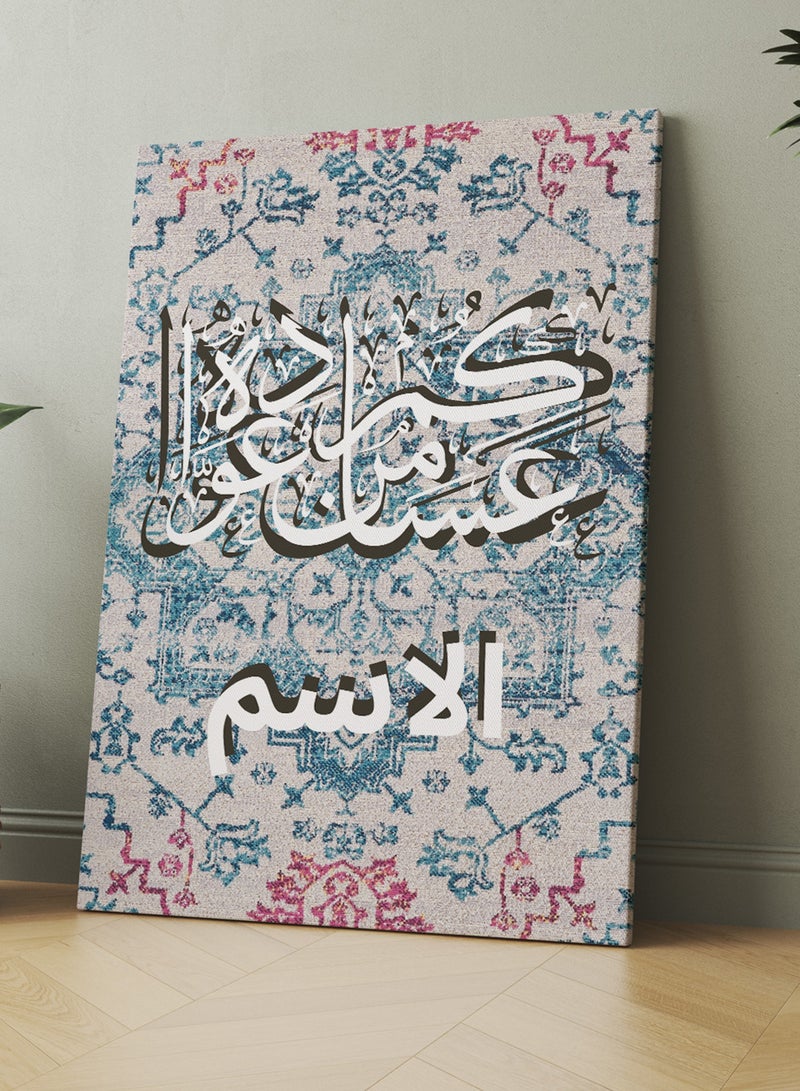 عساكم من عواده
الاسم